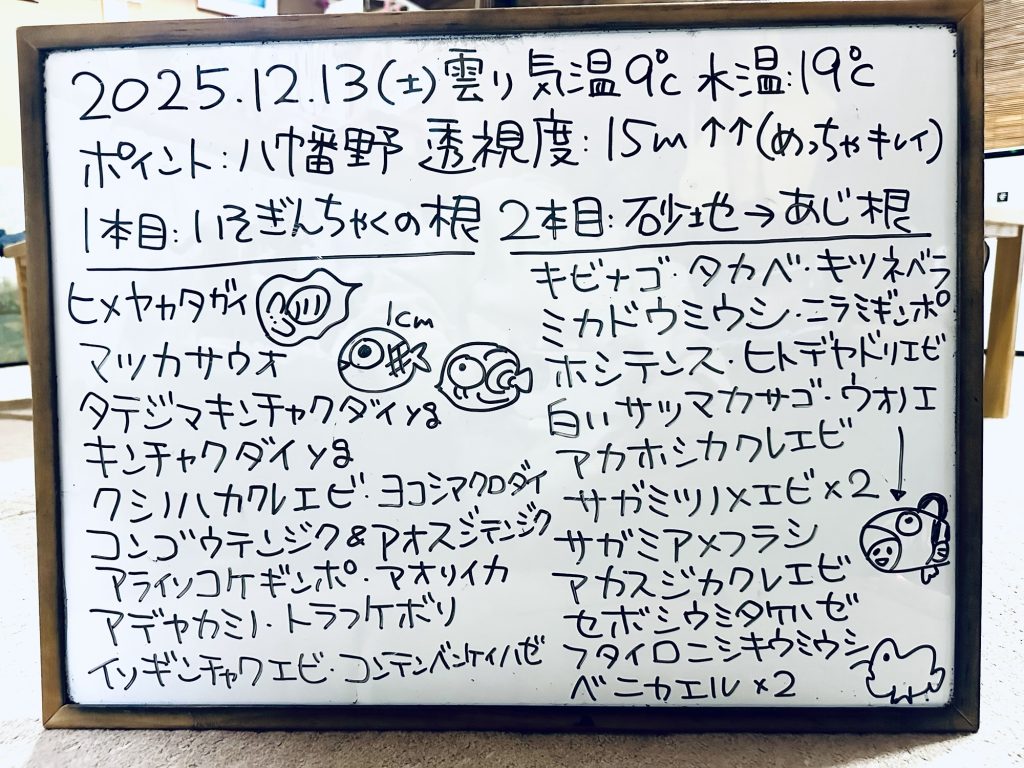 2025.12.13(土)雲り 気温9℃ 水温:19℃
ポイント:八幡野 透視度:15m↑↑(めっちゃキレイ)
1本目:いそぎんちゃくの根
ヒメヤカタガイ
1cm
マツカサウオ
タテジマキンチャクダイyg
キンチャクダイyg
クシノハカクレエビ・ヨコシマクロダイ
コンゴウテンジク&アオスジテンジク
アライソコケギンポ・アオリイカ
アデヤカミノ・トラフケボリ
イソギンチャクエビ・コンテンベンケイハゼ
2本目:砂地→あじ根
キビナゴ・タカベ・キツネベラ
ミカドウミウシ・ニラミギンポ
ホシテンス・ヒトデヤドリエビ
白いサツマカサゴ・ウオノエ
アカホシカクレエビ
サガミツノメエビ×2
サガミアメフラシ
アカスジカクレエビ
セボシウミタケハゼ
フタイロニシキウミウシ
ベニカエル×2